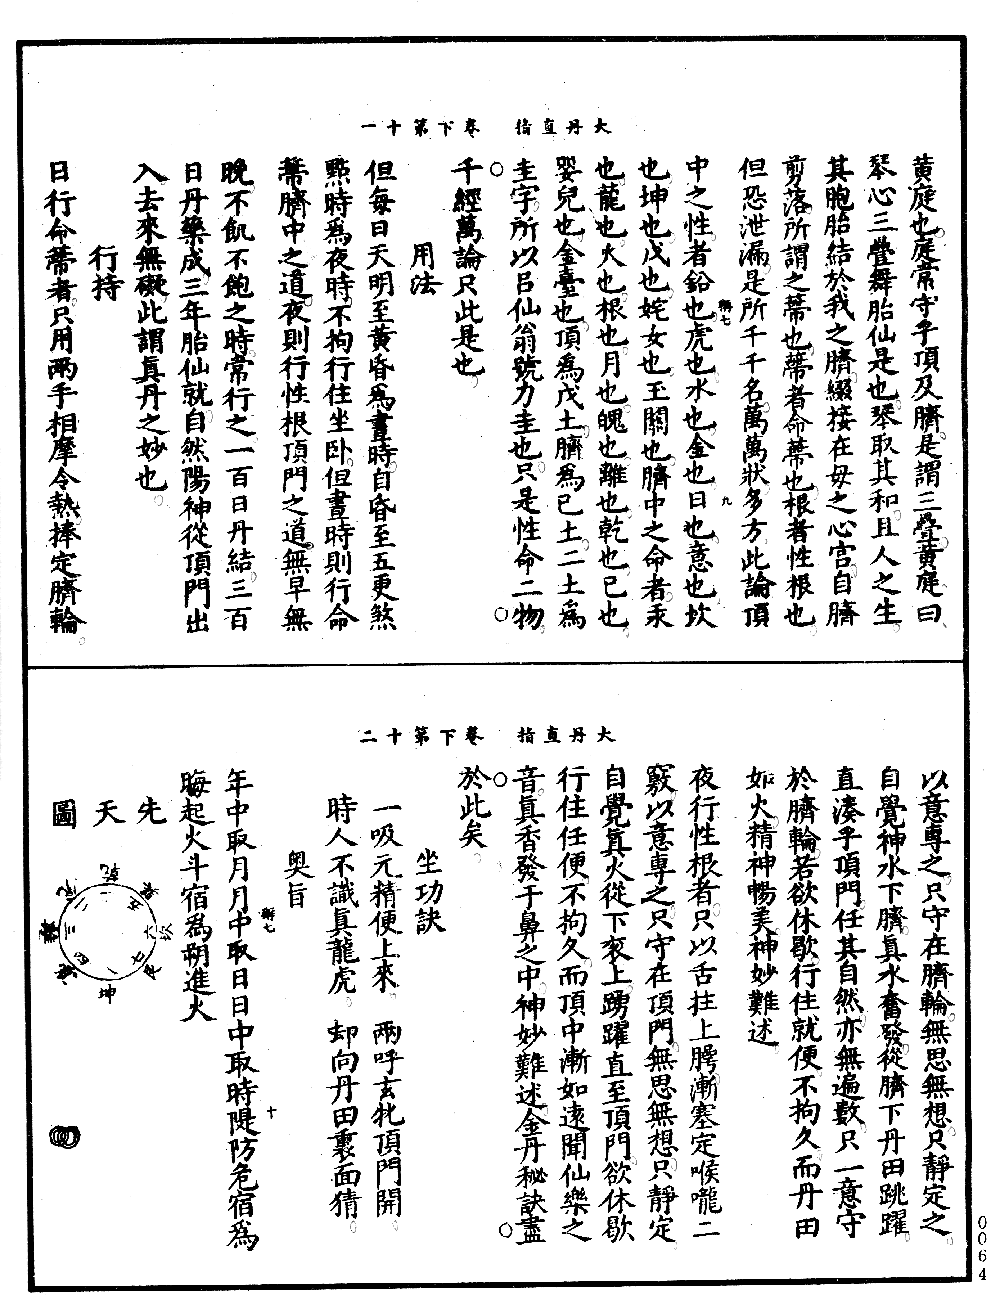 大丹直指　卷下第十一
黃庭也庭常守乎頂及臍是謂三疊黃庭曰
琴心三疊舞胎仙是也琴取其和且人之生
其胞胎結於我之臍綴接在母之心宮自臍
剪落所謂之蔕也蔕者命蔕也根者性根也
但恐泄漏是所千千名萬萬狀多方此論頂
中之性者鉛也虎也水也金也日也意也坎
也坤也戊也姹女也玉關也臍中之命者汞
也龍也火也根也月也魄也離也乾也已也
嬰兒也金臺也頂爲戊土臍爲已土二土爲
圭字所以呂仙翁號刀圭也只是性命二物
千經萬論只此是也
用法
但每日天明至黃昏爲晝時自昏至五更煞
點時爲夜時不拘行住坐卧但晝時則行命
蔕臍中之道夜則行性根頂門之道無早無
晚不飢不飽之時常行之一百日丹結三百
日丹藥成三年胎仙就自然陽神從頂門出
入去來無礙此謂眞丹之妙也
行持
日行命蔕者只用兩手相摩令熱捧定臍輪
大丹直指　卷下第十二
以意專之只守在臍輪無思無想只靜定之
自覺神水下臍眞水奮發從臍下丹田跳躍
直湊乎頂門任其自然亦無遍數只一意守
於臍輪若欲休歇行住就便不拘久而丹田
如火精神暢美神妙難述
夜行性根者只以舌拄上腭漸塞定喉嚨二
竅以意專之只守在頂門無思無想只靜定
自覺眞火從下衮上踴躍直至頂門欲休歇
行住任便不拘久而頂中漸如遠聞仙樂之
音眞香發于鼻之中神妙難述金丹秘訣盡
於此矣
坐功訣
一吸元精便上來　兩呼玄牝頂門開
時人不識眞龍虎　却向丹田裏面猜
奧旨
年中取月月中取日日中取時隄防危宿爲
晦起火斗宿爲朔進火
先
天
圖
乾一
兌二
離三
震四
巽五
坎六
艮七
坤八
0064